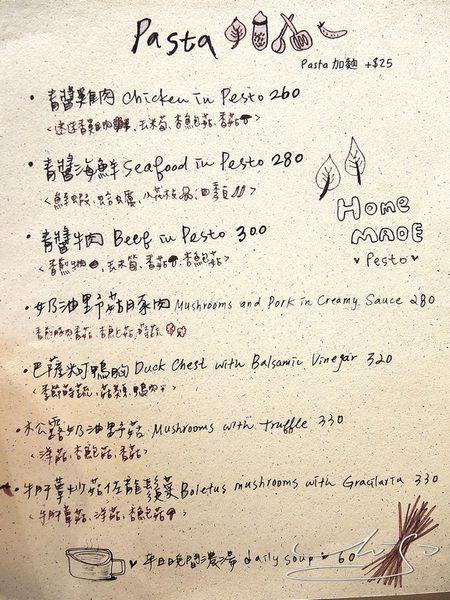 Pasta
Pasta 加麵 +$25
• 青醬雞肉 Chicken in Pesto 260
• 青醬海鮮 Seafood in Pesto 280
Home
MADE
♥ Pesto ♥
• 青醬牛肉 Beef in Pesto 300
• 奶油野菇豚肉 Mushrooms and Pork in Creamy Sauce 280
• 巴薩米可鴨胸 Duck Chest with Balsamic Vinegar 320
<季節時蔬、菇類、鴨肉>
• 松露奶油野菇 Mushrooms with truffle 330
<洋菇、杏鮑菇、香菇>
• 牛肝蕈炒菇佐龍鬚菜 Boletus mushrooms with Gracilaria 330
<牛肝蕈菇、洋菇、杏鮑菇>
♥ 平日晚間濃湯 daily soup 60